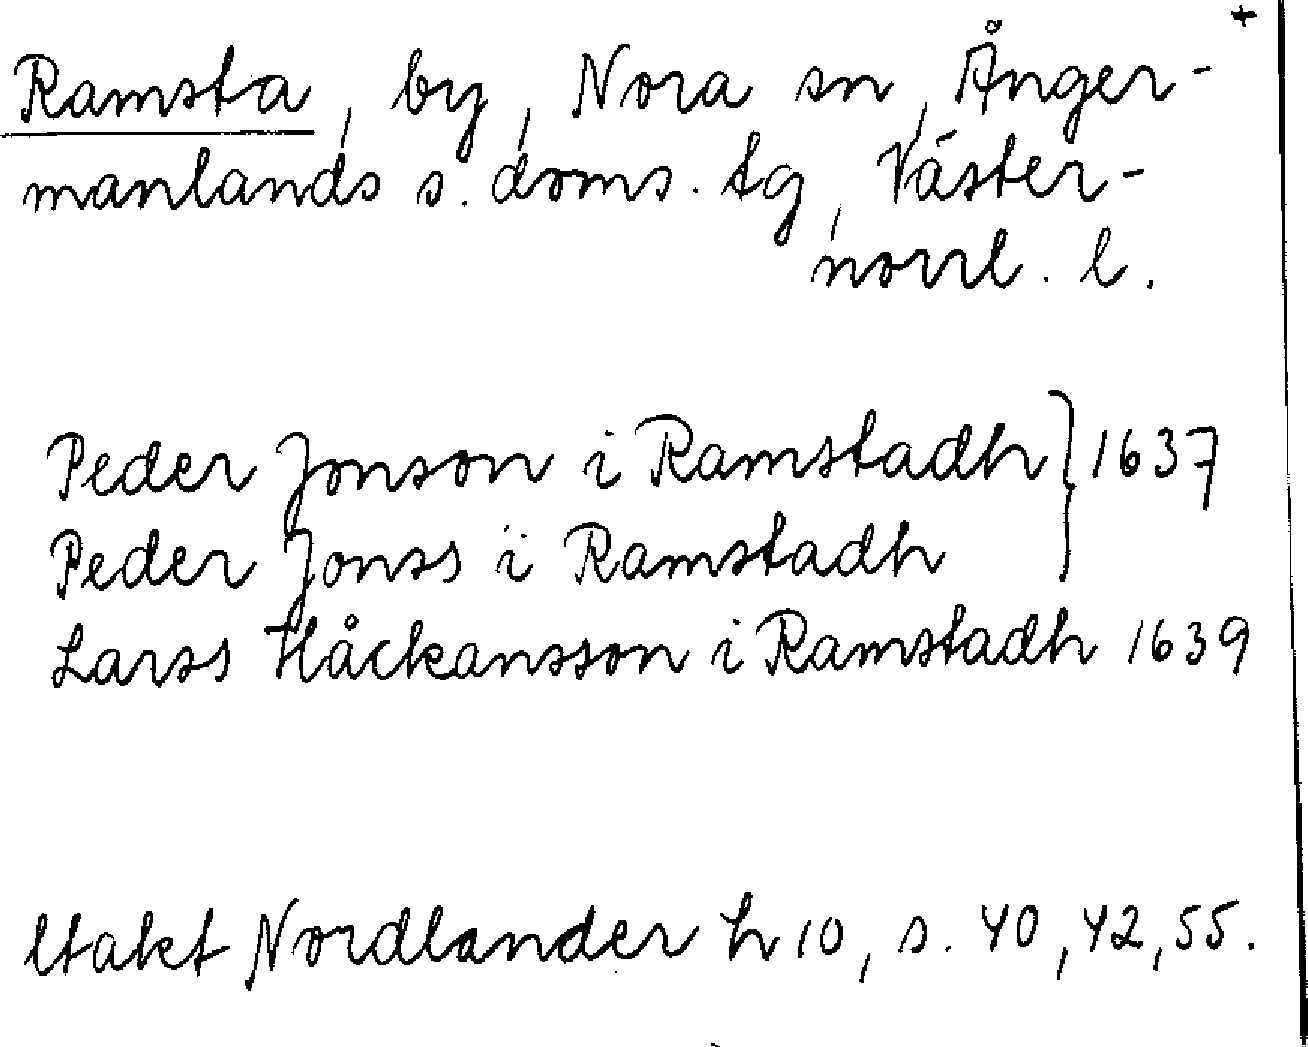 +
Ramsta, by, Nora sn, Ånger-
manlands s. doms. tg, Väster-
norrl. l.
Peder Jonson i Ramstadh } 1637
Peder Jonss i Ramstadh
Larss Håckansson i Ramstadh 1639
Utakt Nordlander h 10, s. 40, 42, 55.